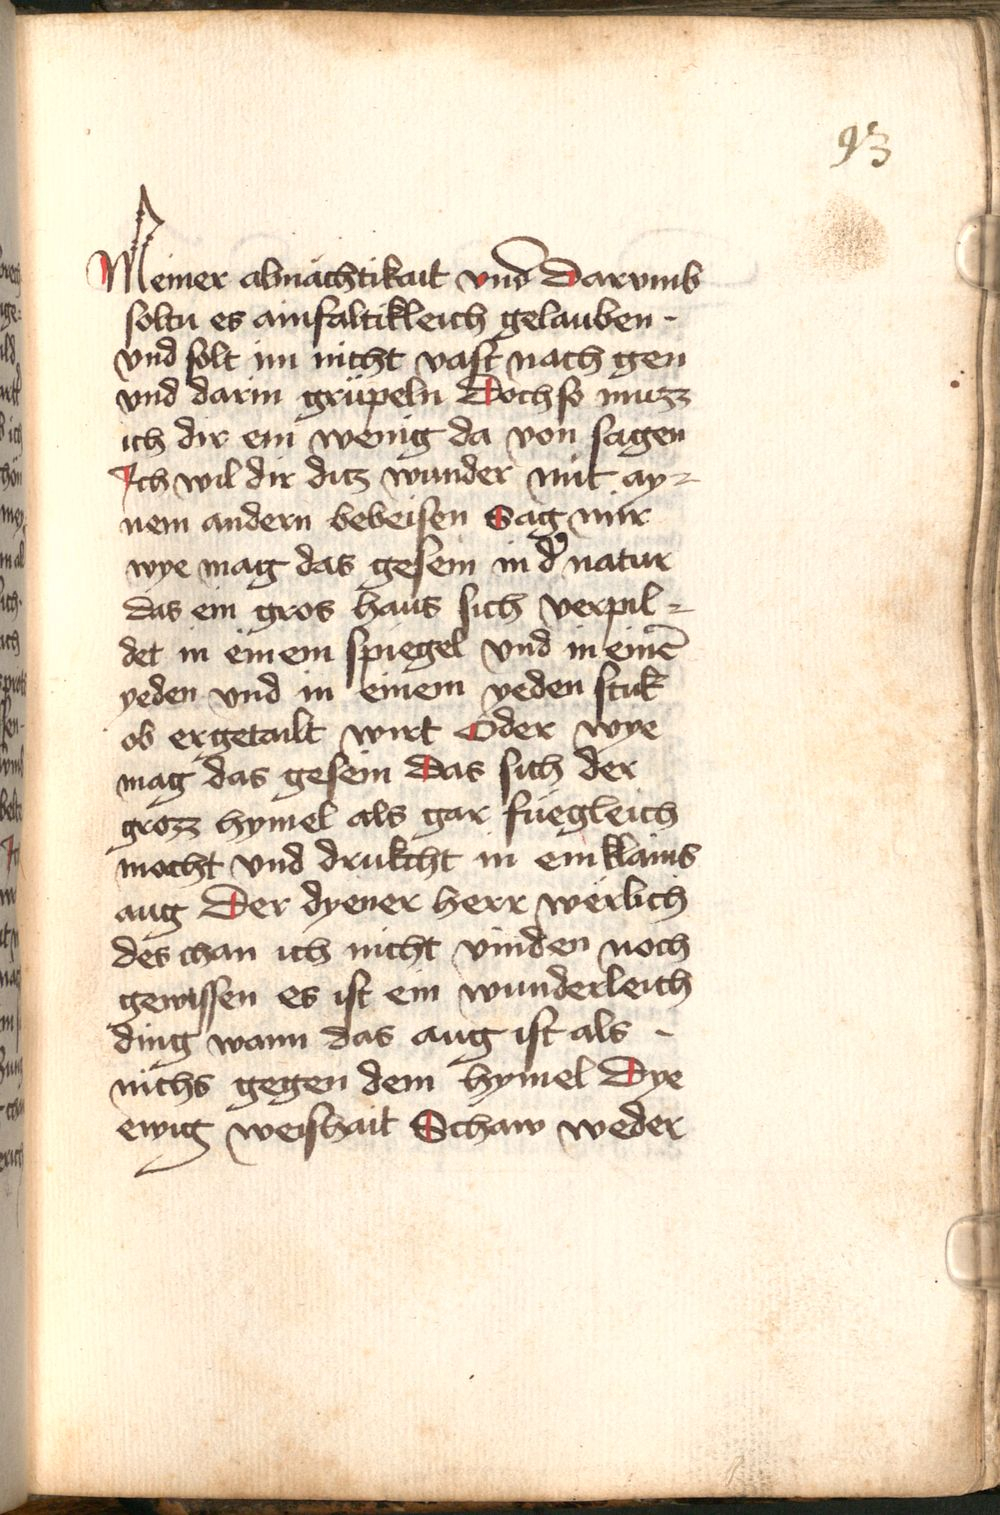 93
Meiner almächtikait vnd Darvmb
soltu es ainfaltikleich gelauben -
vnd solt im nicht vast nach gen
vnd darin grüpeln Doch so muzz
ich dir ein wenig da von sagen
Ich wil dir ditz wunder mit ay=
nem andern beweisen Sag mir
wye mag das gesein in d' natur
das ein gros haus sich verpil=
det in einem spiegel vnd in einē
yeden vnd in einem yeden stuk
ob er getailt wirt Oder wye
mag das gesein Das sich der
grozz hymel als gar füegleich
mocht vnd drukcht in ein klains
aug Der dyener herr werlich
des chan ich nicht vinden noch
gewissen es ist ein wunderleich
ding wann das aug ist als -
nichs gegen dem hymel Dye
ewig weishait Schaw weder